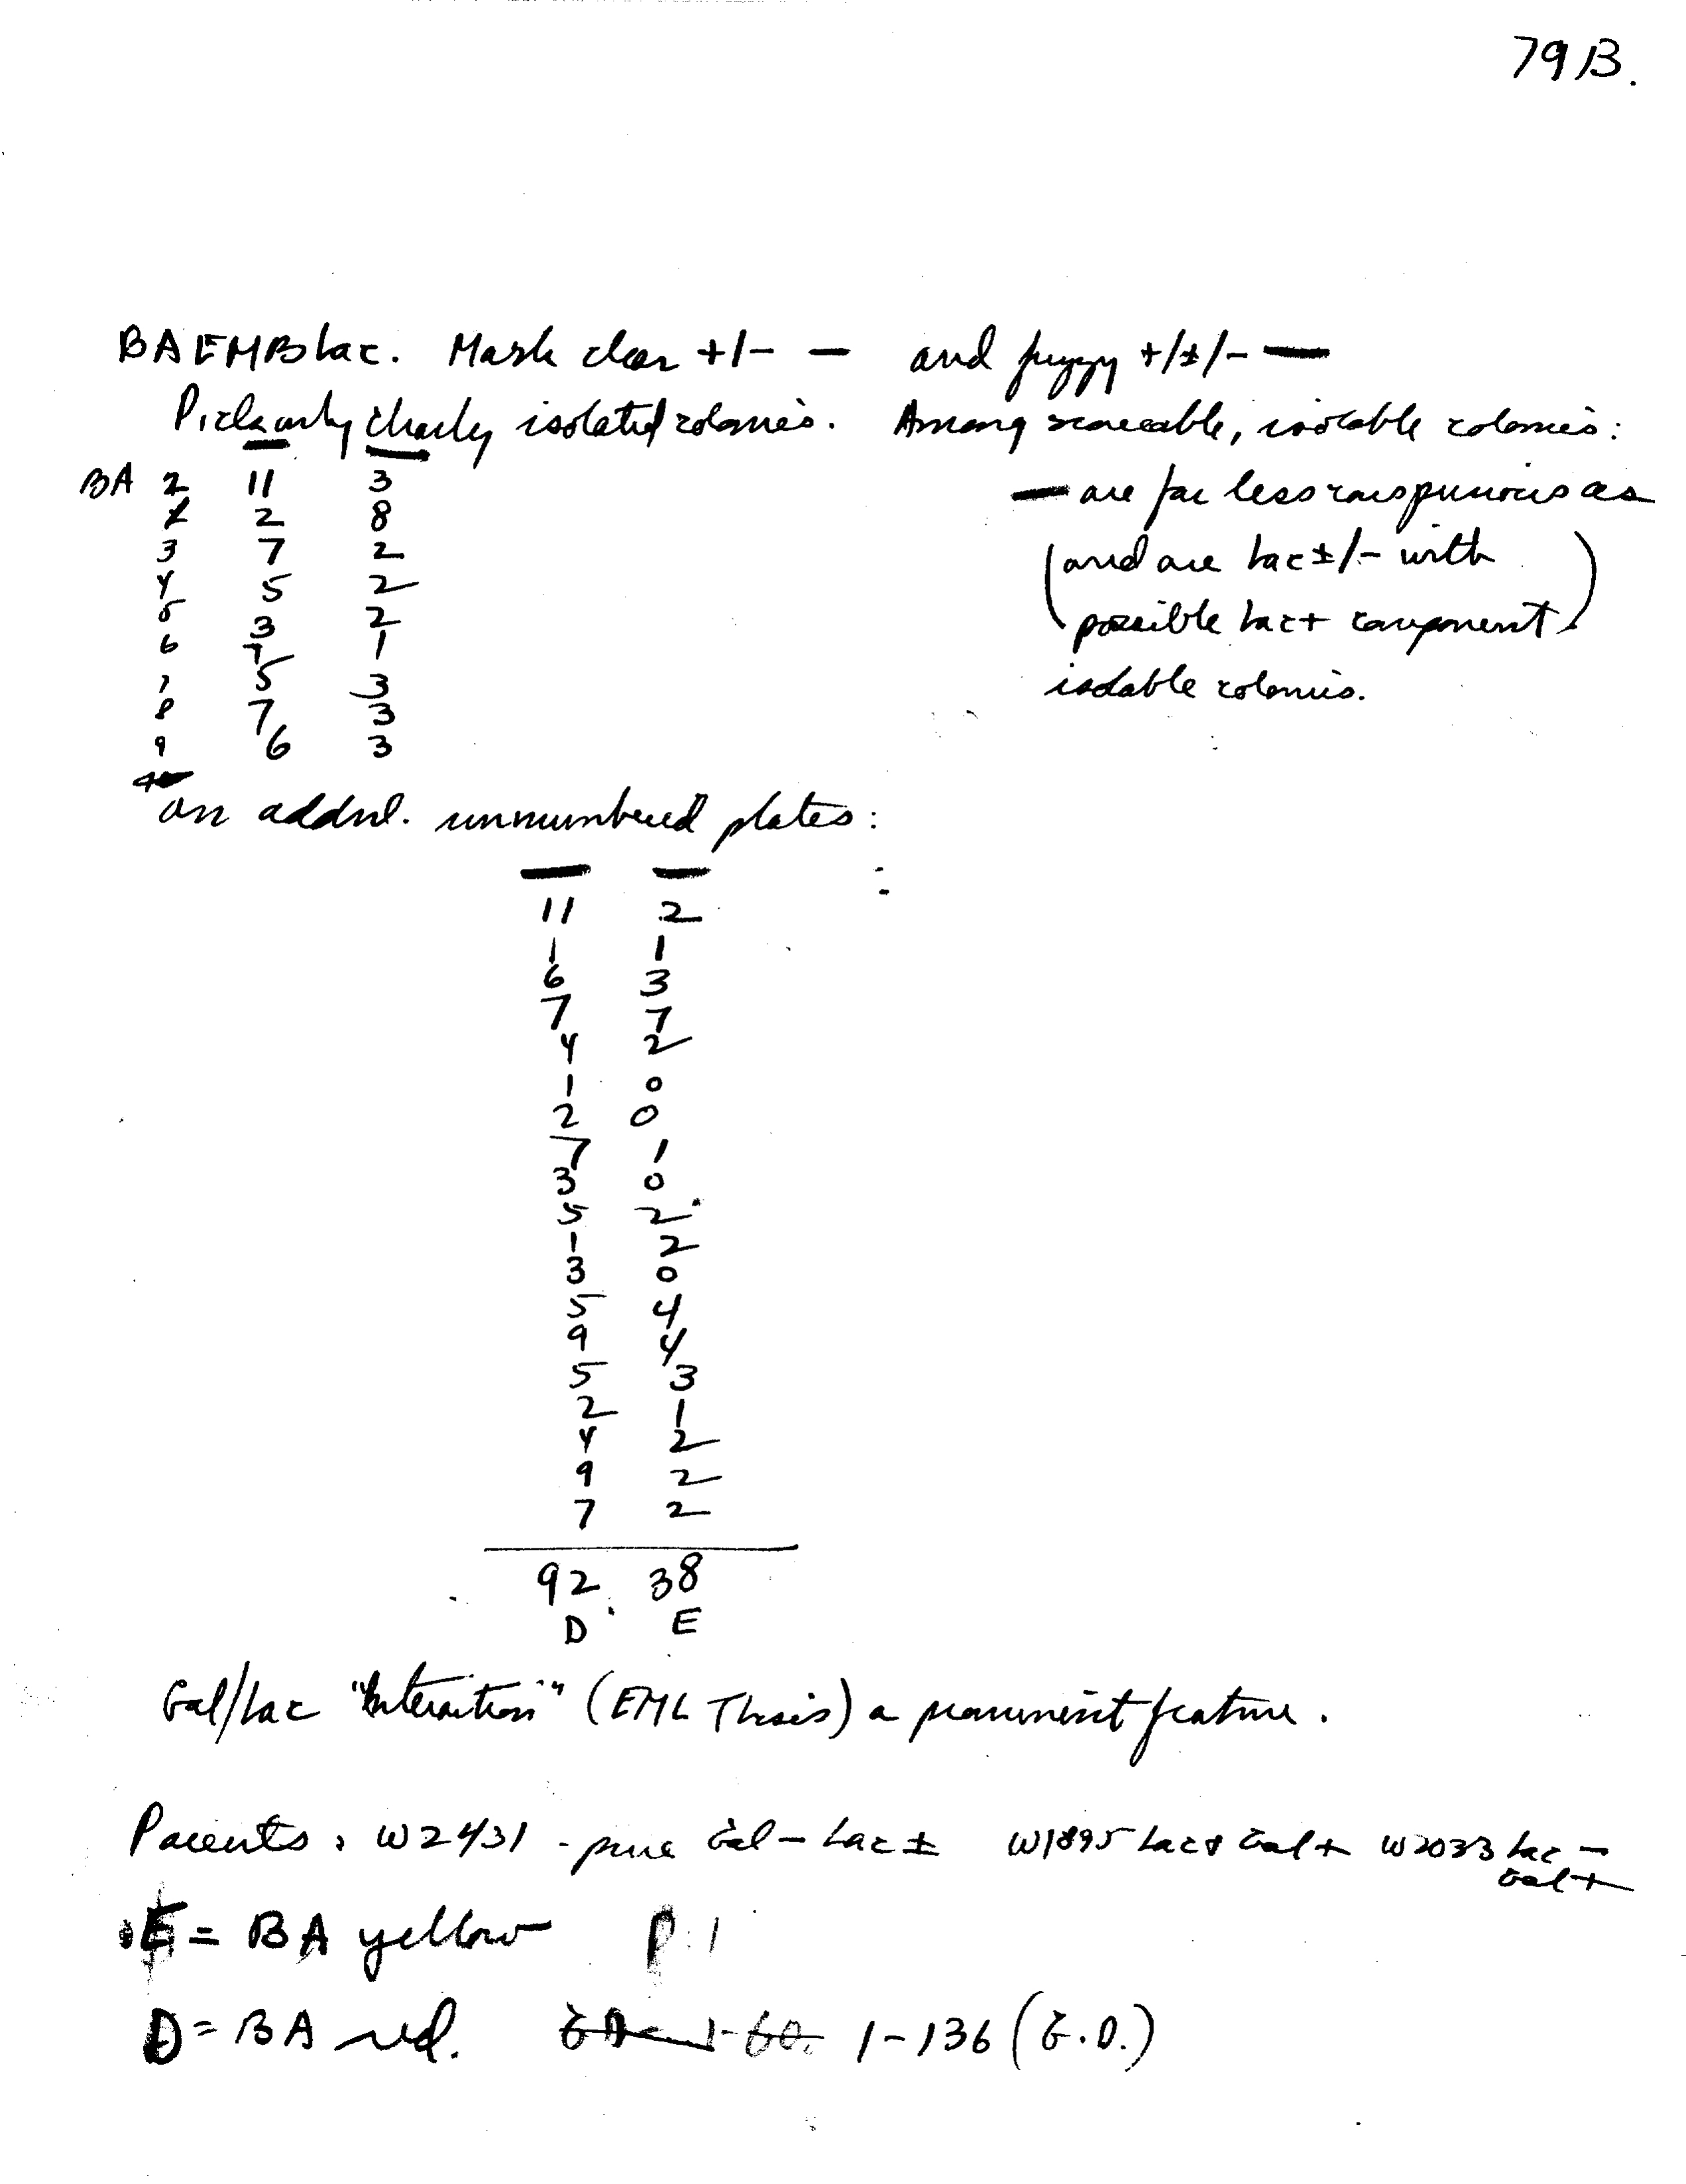 79B.
BA EMB Lac. Mark clear +/- — and fuzzy +/±/- —
Pick only clearly isolated colonies. Among scoreable, isolable colonies:
BA 2 11 3
2 8
3 7 2
4 5 2
5 3 2
6 1 1
7 5 3
8 7 3
9 6 3
— are far less conspicuous as
(and are Lac±/- with
possible Lac+ component)
isolable colonies.
on addnl. unnumbered plates:
— —
11 2
1 1
6 3
7 7
4 2
1 0
2 0
7 1
3 0
5 2
1 2
3 0
5 4
9 4
5 3
2 1
4 2
9 2
7 2
92 38
D E
Gal/Lac "Interaction" (EML Thesis) a prominent feature.
Parents: W2431 - pure Gal- Lac± W1895 Lac+ Gal+ W2033 Lac-
Gal+
E = BA yellow P.1
D = BA red. 1-136 (G.D.)